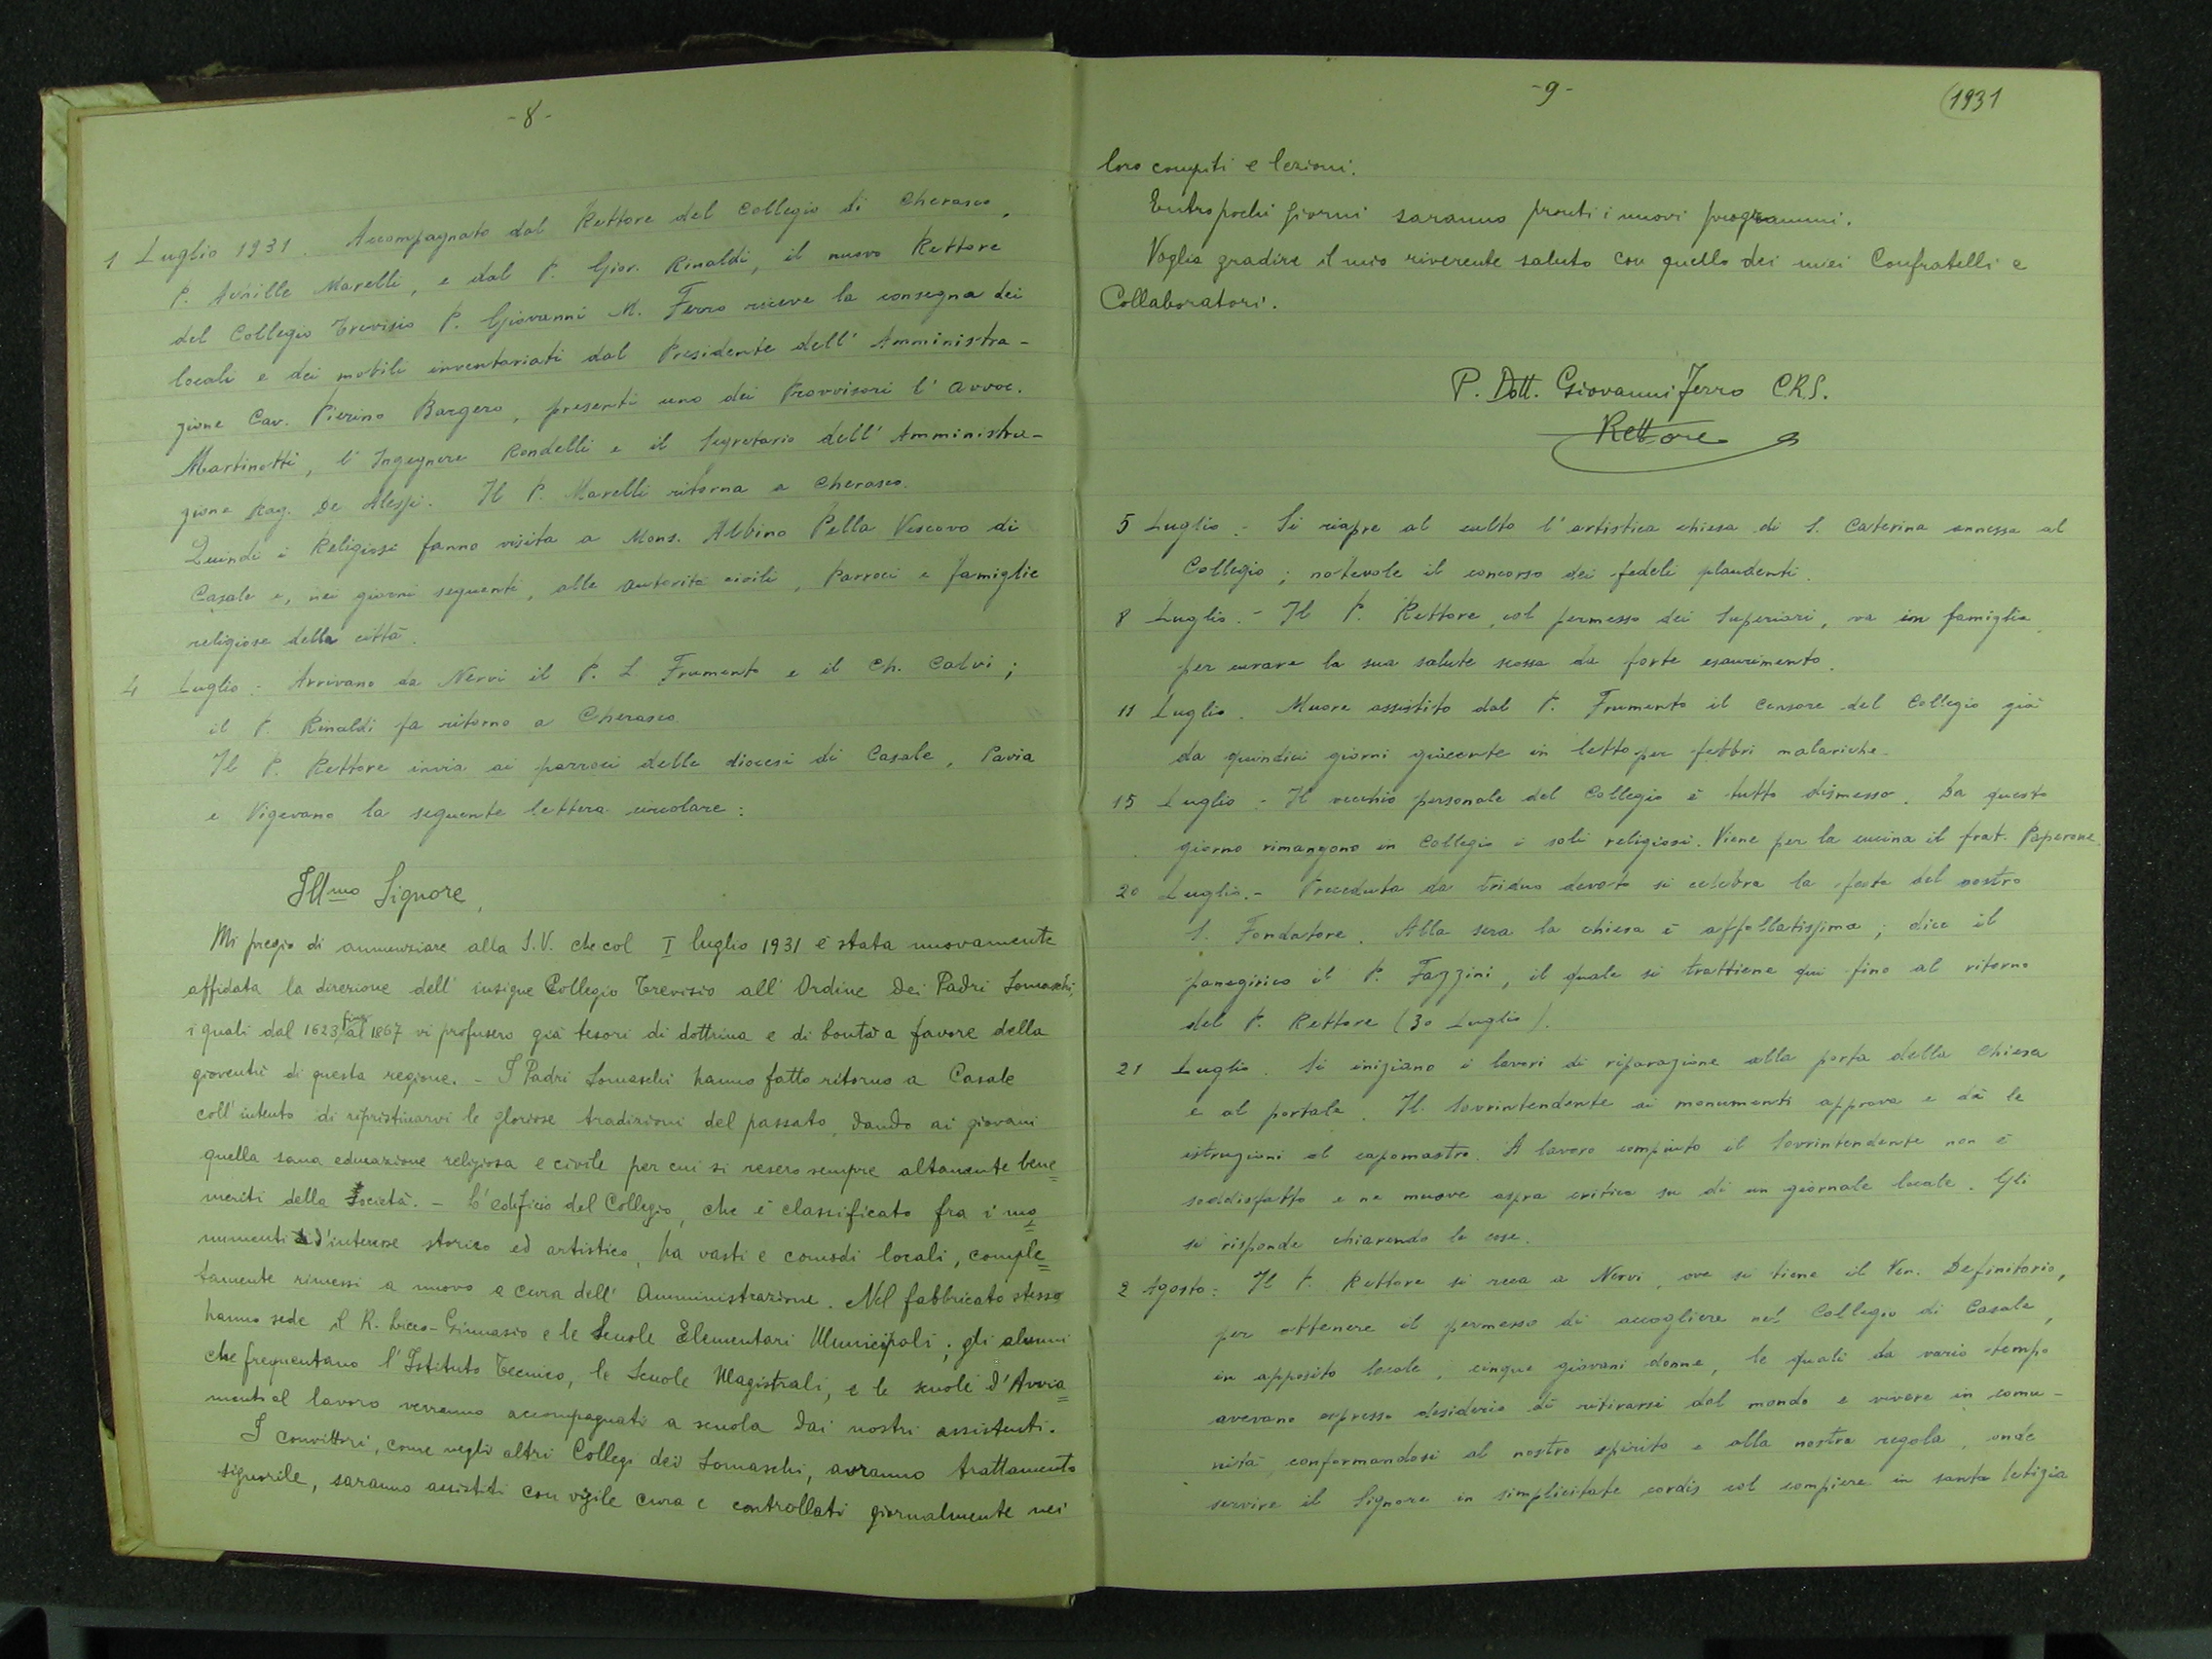 -8-
1 Luglio 1931. Accompagnato dal Rettore del Collegio di Cherasco,
P. Achille Marelli, e dal P. Giov. Rinaldi, il nuovo Rettore
del Collegio Trevisio P. Giovanni M. Ferro riceve la consegna dei
locali e dei mobili inventariati dal Presidente dell' Amministra-
zione Cav. Pierino Bargero, presenti uno dei Provvisori l' Avvoc.
Martinotti, l' Ingegnere Rondelli e il Segretario dell' Amministra-
zione Rag. De Alessi. Il P. Marelli ritorna a Cherasco.
Quindi i Religiosi fanno visita a Mons. Albino Pella Vescovo di
Casale e, nei giorni seguenti, alle autorità civili, Parroci e famiglie
religiose della città.
4 Luglio: Arrivano da Nervi il P. L. Frumento e il Ch. Calvi;
il P. Rinaldi fa ritorno a Cherasco.
Il P. Rettore invia ai parroci delle diocesi di Casale, Pavia
e Vigevano la seguente lettera circolare:
Ill.mo Signore,
Mi pregio di annunziare alla S.V. che col I luglio 1931 è stata nuovamente
affidata la direzione dell' insigne Collegio Trevisio all' Ordine Dei Padri Somaschi,
i quali dal 1623 fino al 1867 vi profusero già tesori di dottrina e di bontà a favore della
gioventù di questa regione. - I Padri Somaschi hanno fatto ritorno a Casale
coll' intento di ripristinarvi le gloriose tradizioni del passato, dando ai giovani
quella sana educazione religiosa e civile per cui si resero sempre altamente bene=
meriti della Società. - L' edificio del Collegio, che è classificato fra i mo=
numenti d' interesse storico ed artistico, ha vasti e comodi locali, comple=
tamente rimessi a nuovo a cura dell' Amministrazione. Nel fabbricato stesso
hanno sede il R. Liceo-Ginnasio e le Scuole Elementari Municipali; gli alunni
che frequentano l' Istituto Tecnico, le Scuole Magistrali, e le scuole d' Avvia=
mento al lavoro verranno accompagnati a scuola dai nostri assistenti.
I convittori, come negli altri Collegi dei Somaschi, avranno trattamento
signorile, saranno assistiti con vigile cura e controllati giornalmente nei
-9-
1931
loro compiti e lezioni.
Entro pochi giorni saranno pronti i nuovi programmi.
Voglia gradire il mio riverente saluto con quello dei miei Confratelli e
Collaboratori.
P. Dott. Giovanni Ferro C.R.S.
Rettore
5 Luglio: Si riapre al culto l' artistica chiesa di S. Caterina annessa al
Collegio; notevole il concorso dei fedeli plaudenti.
8 Luglio. - Il P. Rettore, col permesso dei Superiori, va in famiglia
per curare la sua salute scossa da forte esaurimento.
11 Luglio. Muore assistito dal P. Frumento il Censore del Collegio già
da quindici giorni giacente in letto per febbri malariche.
15 Luglio - Il vecchio personale del Collegio è tutto dismesso. Da questo
giorno rimangono in Collegio i soli religiosi. Viene per la cucina il frat. Paperone.
20 Luglio. - Preceduta da triduo devoto si celebra la festa del nostro
S. Fondatore. Alla sera la chiesa è affollatissima; dice il
panegirico il P. Fazzini, il quale si trattiene qui fino al ritorno
del P. Rettore (30 Luglio).
21 Luglio. Si iniziano i lavori di riparazione alla porta della Chiesa
e al portale. Il Sovrintendente ai monumenti approva e dà le
istruzioni al capomastro. A lavoro compiuto il Sovrintendente non è
soddisfatto e ne muove aspra critica su di un giornale locale. Gli
si risponde chiarendo le cose.
2 Agosto: Il P. Rettore si reca a Nervi, ove si tiene il Ven. Definitorio,
per ottenere il permesso di accogliere nel Collegio di Casale,
in apposito locale, cinque giovani donne, le quali da vario tempo
avevano espresso desiderio di ritirarsi dal mondo e vivere in comu-
nità, conformandosi al nostro spirito e alla nostra regola, onde
servire il Signore in simplicitate cordis col compiere in santa letizia